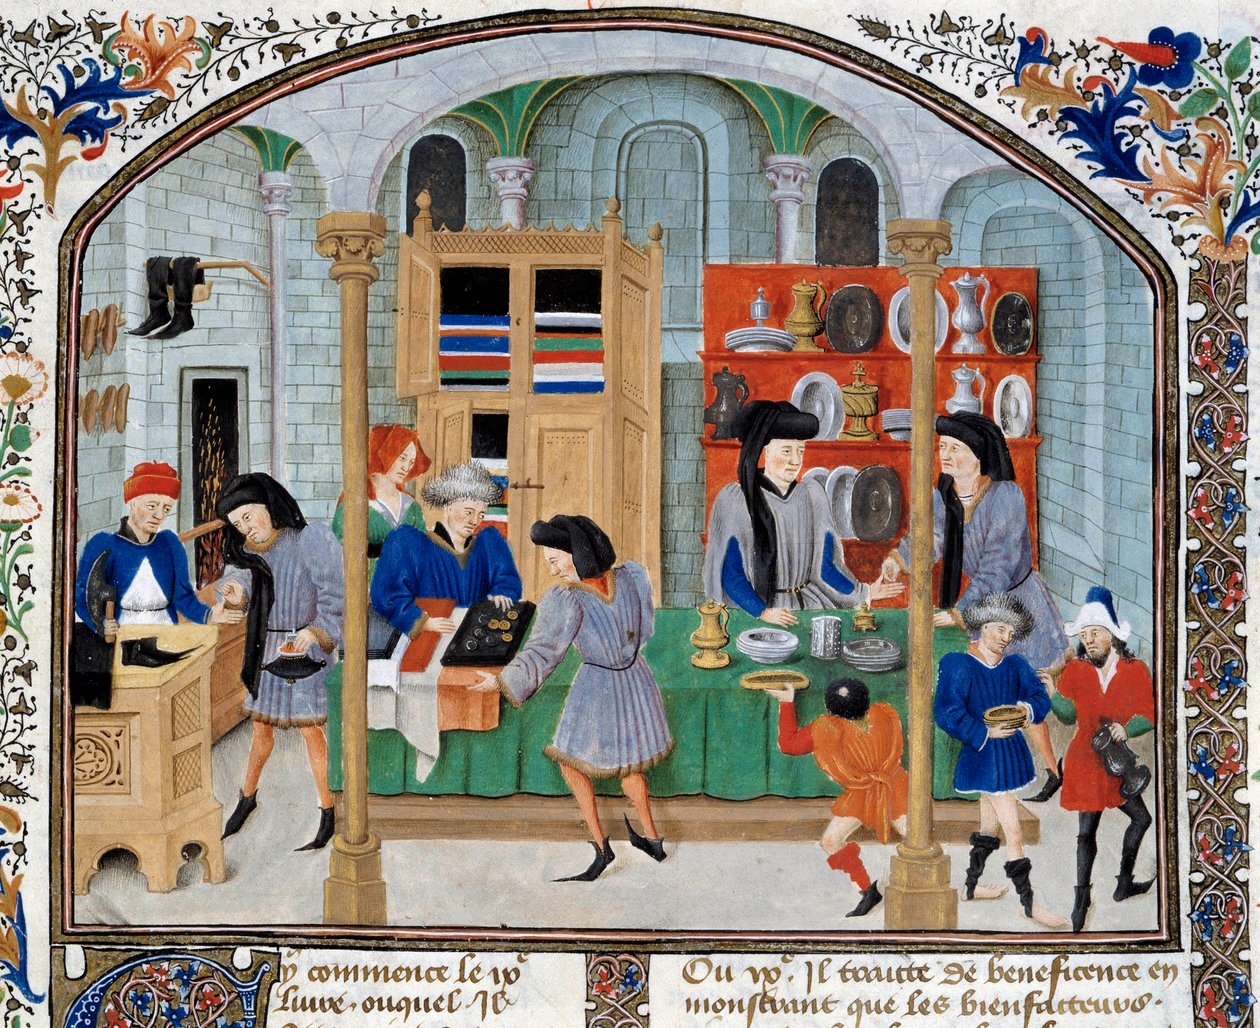 Cy commence le ixᵉ
Liure. ouquel. Il
Ou ixᵉ. Il traitte de beneficence en
monstrant que les bienfacteurs.